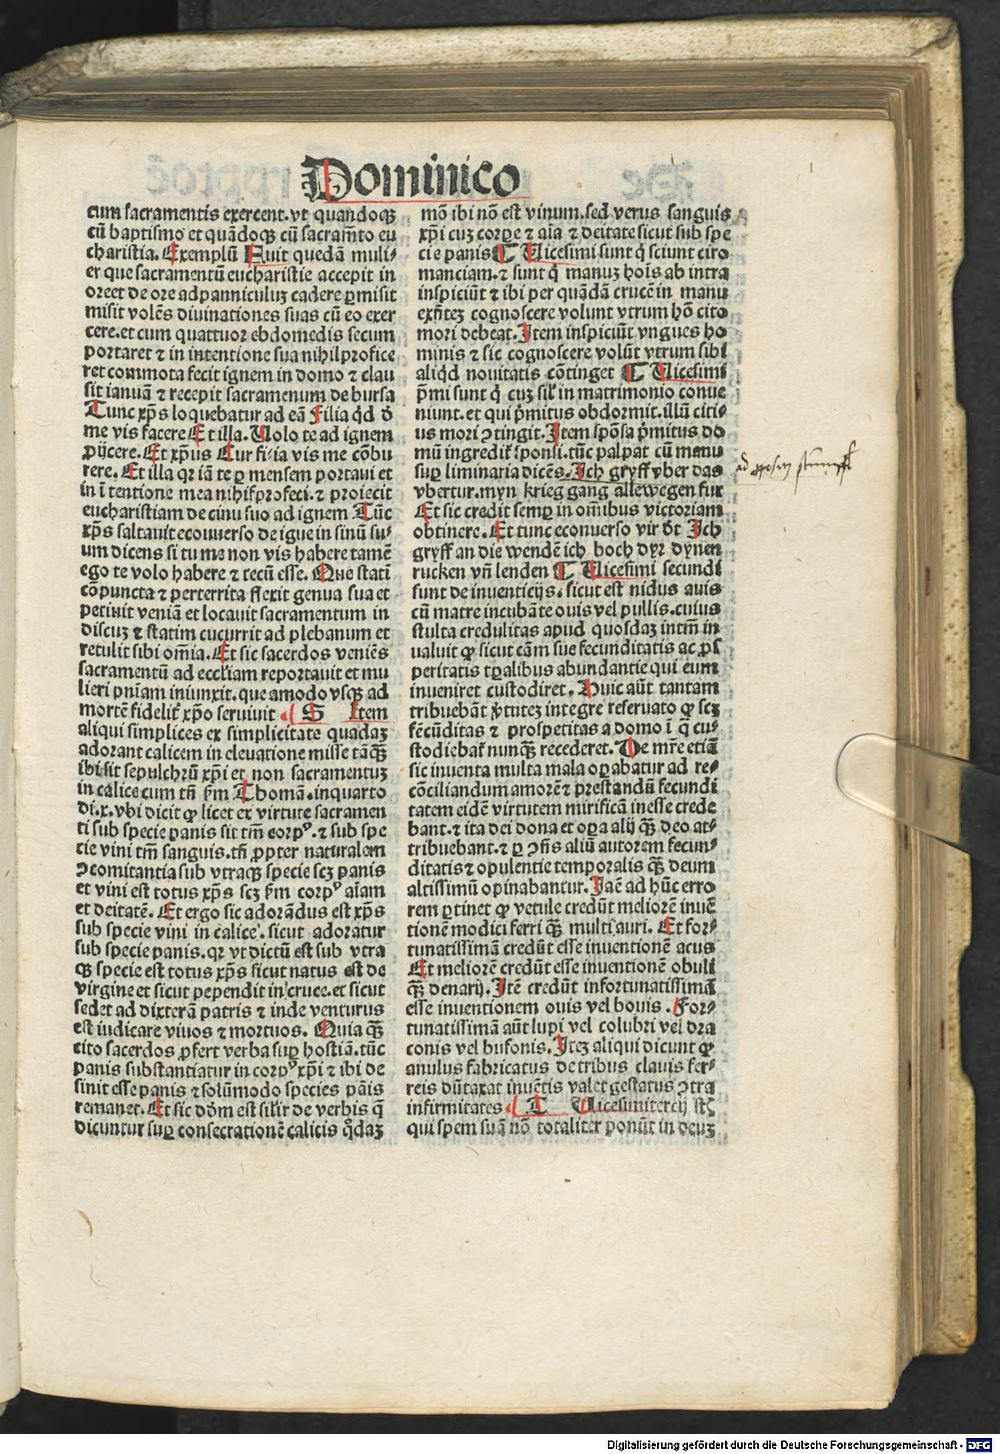 Dominico
cum sacramentis exercent. vt quandoqꝫ
cū baptismo et quādoqꝫ cū sacramt̄o eu
charistia. Exemplū Fuit quedā muli⸗
er que sacramentū eucharistie accepit in
os et de ore ad panniculuꝫ cadere ꝑmisit
misit volēs diuinationes suas cū eo exer
cere. et cum quattuor ebdomedis secum
portaret ⁊ in intentione sua nihil profice
ret commota fecit ignem in domo ⁊ clau
sit ianuā ⁊ recepit sacramenum de bursa
Tunc xp̄s loquebatur ad eā Filia qd̄ d̄
me vis facere Et illa. Uolo te ad ignem
proijcere. Et xp̄us Cur filia vis me cōbu
rere. Et illa qr iā te ꝑ mensem portaui et
in ītentione mea nihil profeci. ⁊ proiecit
eucharistiam de cinu suo ad ignem Tūc
xp̄s saltauit econuerso de igne in sinū su⸗
um dicens si tu me non vis habere tamē
ego te volo habere ⁊ tecū esse. Que stati
cōpuncta ⁊ perterrita flexit genua sua et
petiuit veniā et locauit sacramentum in
discuꝫ ⁊ statim cucurrit ad plebanum et
retulit sibi om̄ia. Et sic sacerdos veniēs
sacramentū ad eccl̄iam reportauit et mu
lieri pn̄iam iniunxit. que amodo vsqꝫ ad
mortē fidelit̄ xp̄o seruiuit S Item
aliqui simplices ex simplicitate quadaꝫ
adorant calicem in eleuatione misse tāqꝫ
ibi sit sepulchrū xp̄i et non sacramentuꝫ
in calice cum tn̄ ẜm Thomā. in quarto
di. x. vbi dicit ꝙ licet ex virtute sacramen
ti sub specie panis sit tm̄ corpꝰ. ⁊ sub spe
cie vini tm̄ sanguis. tn̄ ꝓpter naturalem
ↄcomitantia sub vtraqꝫ specie scꝫ panis
et vini est totus xp̄s scꝫ ẜm corpꝰ aīam
et deitatē. Et ergo sic adorādus est xp̄s
sub specie vini in calice. sicut adoratur
sub specie panis. qꝛ vt dictū est sub vtra
qꝫ specie est totus xp̄s sicut natus est de
virgine et sicut pependit in cruce. et sicut
sedet ad dixterā patris ⁊ inde venturus
est iudicare viuos ⁊ mortuos. Quia qꝫ
cito sacerdos ꝓfert verba suꝑ hostiā. tūc
panis substantiatur in corpꝰ xp̄i ⁊ ibi de
sinit esse panis ⁊ solūmodo species pāis
remanet. Et sic dōm est sil̄ir de verbis q̄
dicuntur suꝑ consecrationē calicis q̄daꝫ
mō ibi nō est vinum. sed verus sanguis
xp̄i cuꝫ corꝑe ⁊ aīa ⁊ deitate sicut sub spe
cie panis T Uicesimi sunt q̇ sciunt ciro
manciam. ⁊ sunt q̇ manuꝫ hoīs ab intra
inspiciūt ⁊ ibi per quādā crucē in manu
exn̄teꝫ cognoscere volunt vtrum hō cito
mori debeat. Item inspiciūt vngues ho
minis ⁊ sic cognoscere volūt vtrum sibi
aliqd̄ nouitatis cōtinget T Uicesimi
p̄mi sunt q̇ cuꝫ sil̄ in matrimonio conue
niunt. et qui p̄mitus obdormit. illū citi⸗
us mori ↄtingit. Item spōsa p̄mitus do
mū ingredit̄ sponsi. tūc palpat cū manu
suꝑ liminaria dicēs. Ich gryff vber das
vbertur. myn krieg gang allewegen fur
Et sic credit semꝑ in om̄ibus victoriam
obtinere. Et tunc econuerso vir dt̄ Ich
gryff an die wendē ich boch dyr dynen
rucken vn̄ lenden T Uicesimi secundi
sunt de inuenticijs. sicut est nidus auis
cū matre incubāte ouis vel pullis. cuius
stulta credulitas apud quosdaꝫ intm̄ in
ualuit ꝙ sicut cām sue fecunditatis ac ꝓs
peritatis tꝑalibus abundantie qui eum
inueniret custodiret. Huic aūt tantam
tribuebāt v̄tuteꝫ integre reseruato ꝙ scꝫ
fēcūditas ⁊ prosperitas a domo ī q̄ cu⸗
stodiebat̄ nunqꝫ recederet. De mr̄e etiā
sic inuenta multa mala oꝑabatur ad re⸗
cōciliandum amorē ⁊ prestandū fecundi
tatem eidē virtutem mirificā inesse crede
bant. ⁊ ita dei dona et oꝑa alij qꝫ deo at⸗
tribuebant. ⁊ ꝑ ↄn̄s aliū autorem fecun⸗
ditatis ⁊ opulentie temporalis qꝫ deum
altissimū opinabantur. Jaē ad hūc erro
rem ꝑtinet ꝙ vetule credūt meliorē inuē
tionē modici ferri qꝫ multi auri. Et for⸗
tunatissimā credūt esse inuentionē acus
Et meliorē credūt esse inuentionē obuli
qꝫ denarij. Itē credūt infortunatissimā
esse inuentionem ouis vel bouis. For⸗
tunatissimā aūt lupi vel colubri vel dra
conis vel bufonis. Iteꝫ aliqui dicunt ꝙ
anulus fabricatus de tribus clauis fer⸗
reis dūtaxat inuētis valet gestatus ↄtra
infirmitates T Uicesimitercij st̄
qui spem suā nō totaliter ponūt in deuꝫ
Digitalisierung gefördert durch die Deutsche Forschungsgemeinschaft - DFG